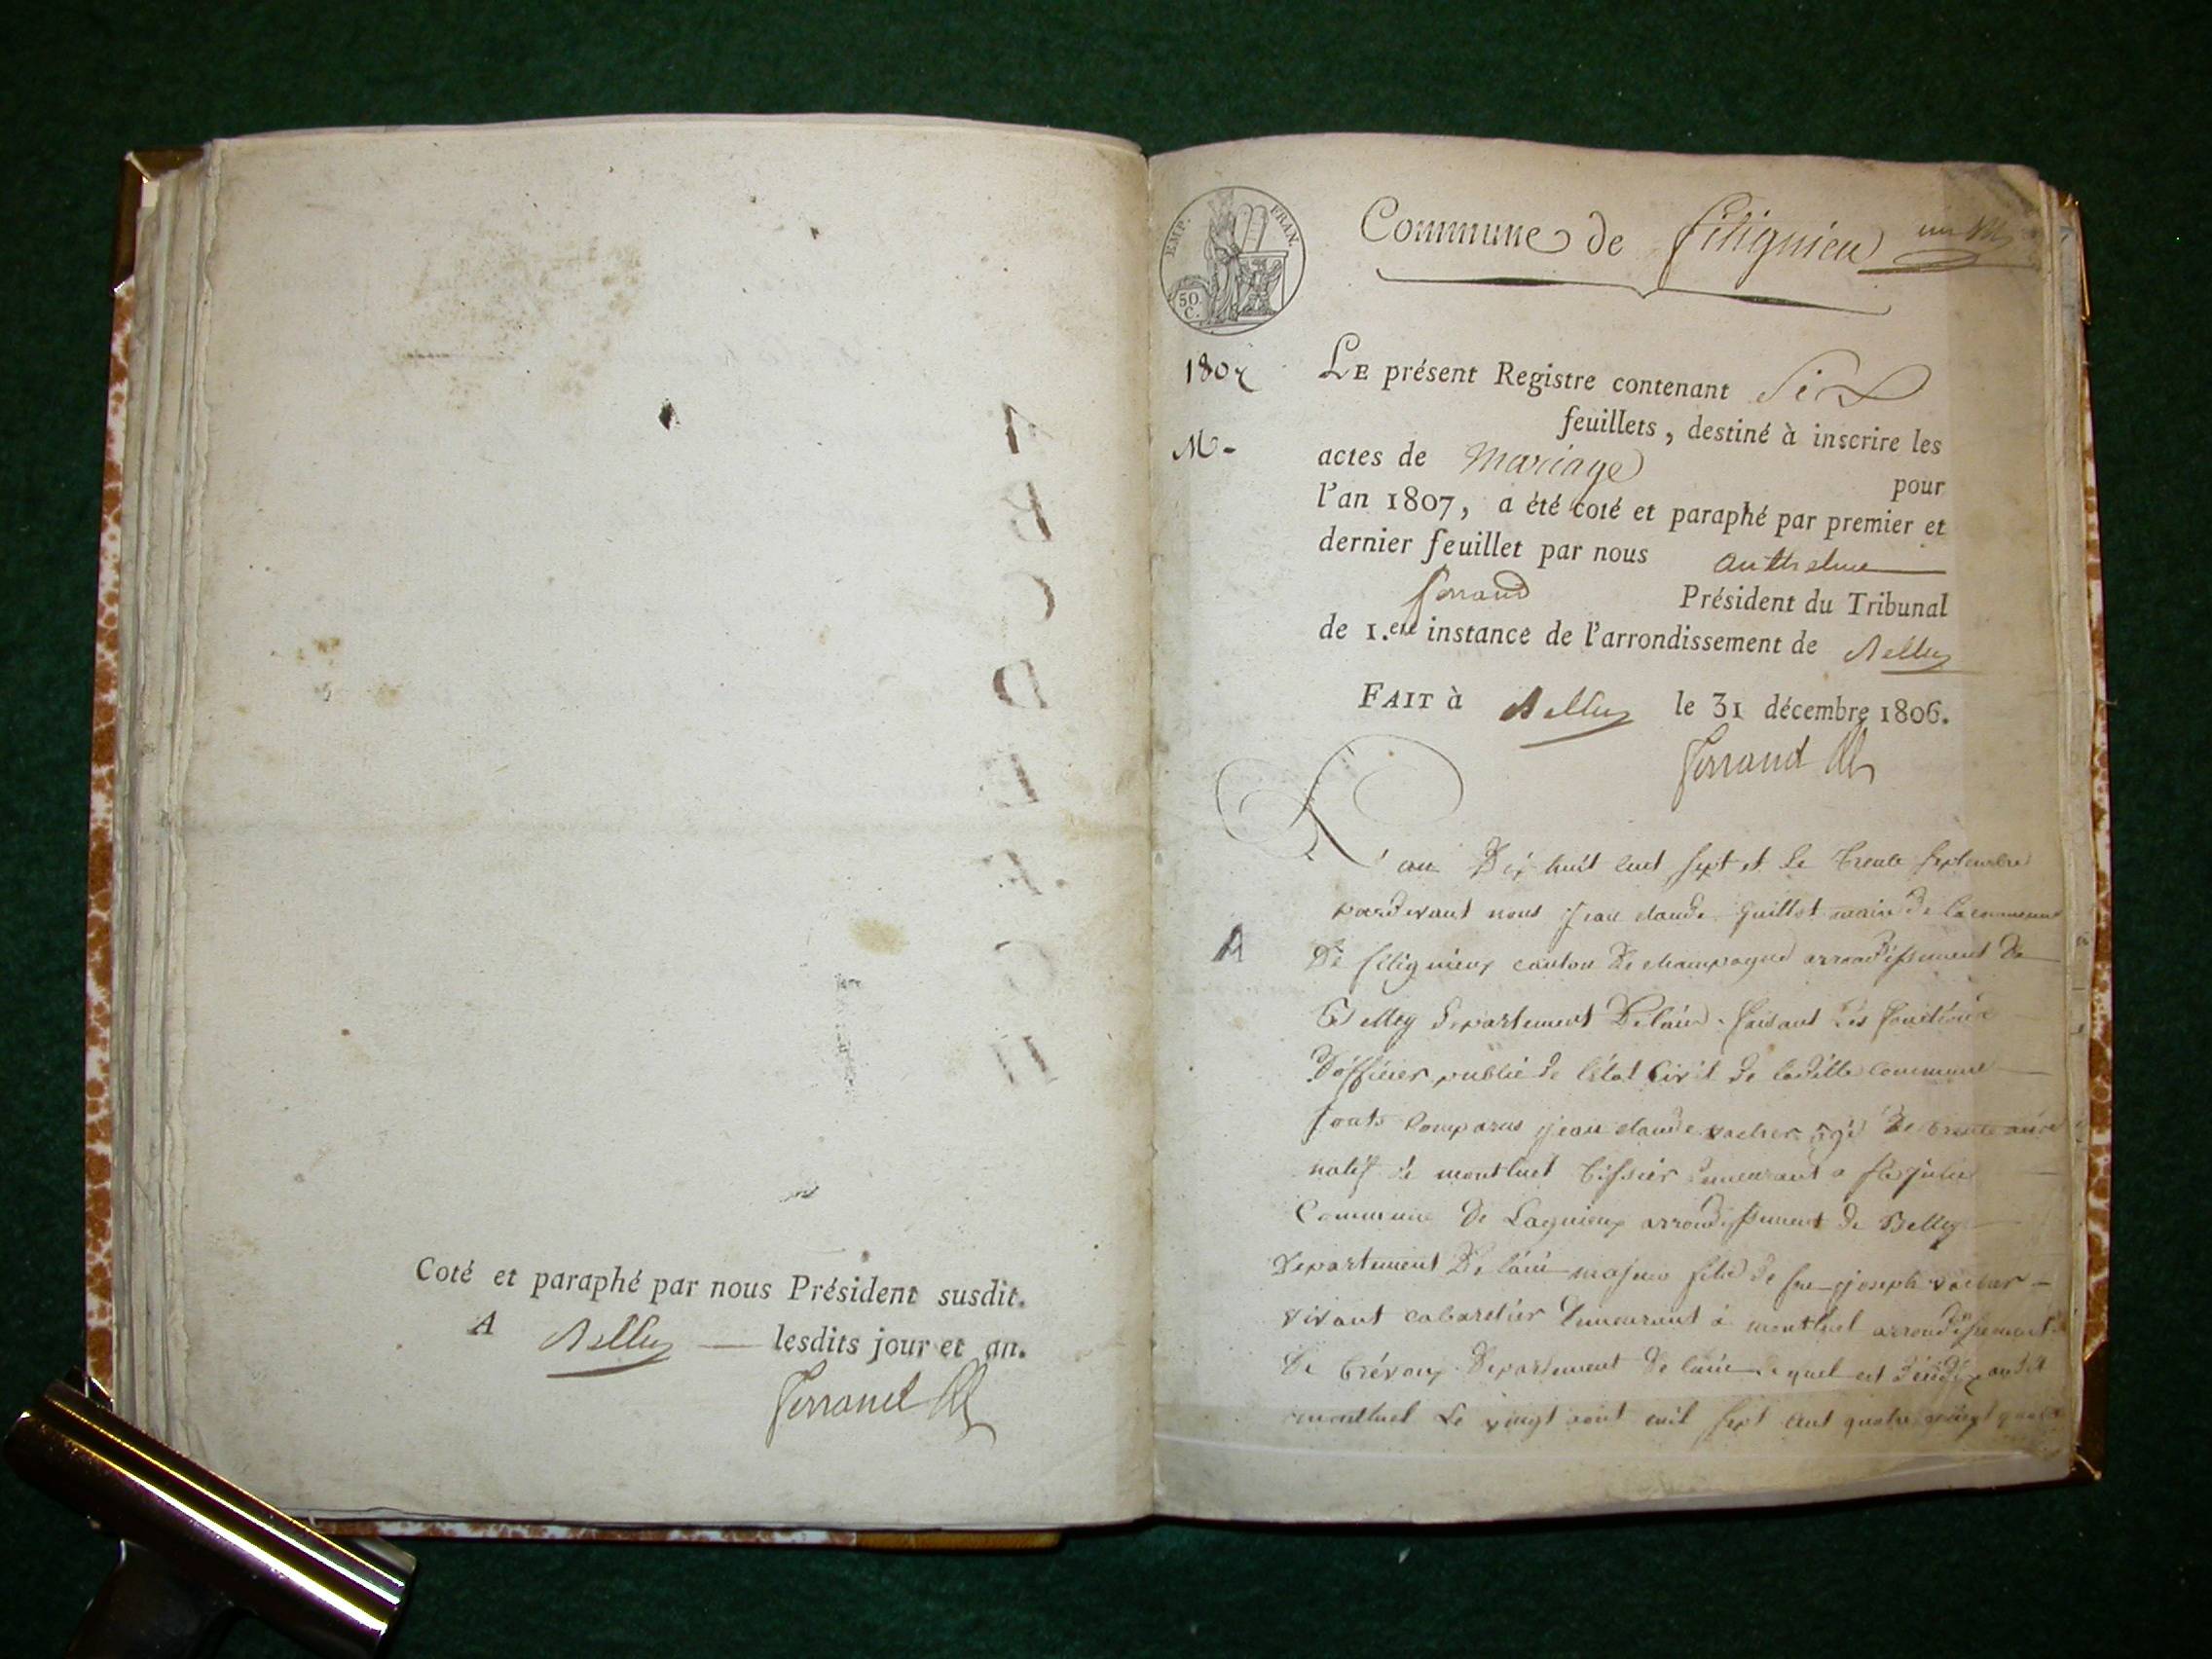 Coté et paraphé par nous Président susdit.
A Belley lesdits jour et an.
Ferrand
EMP. FRAN.
50 C.
Commune de Fitignieu
1807
LE présent Registre contenant Six
feuillets, destiné à inscrire les
M-
actes de Mariage
pour
l'an 1807, a été coté et paraphé par premier et
dernier feuillet par nous Anthelme
ferrand Président du Tribunal
de 1.ere instance de l'arrondissement de Belley
FAIT à Belley le 31 décembre 1806.
Ferrand
L'an Dix huit cent sept et le trente septembre
pardevant nous Jean claude Guillot maire de la commune
A
De fitignieux canton de champagne arrondissement De
Belley Departement De lain faisant les fonctions
D'officier public de l'état Civil de laditte Commune
sont Comparus jean claude vacher âgé De trente
natif de montluel tissier demeurant a
Commune De Lagnieux arrondissement De Belley
Departement De lain majeur fils de feu joseph vacher
vivant cabaretier demeurant à montluel arrondissement
De trévoux Departement De lain lequel est décédé audit
montluel Le vingt aout mil sept cent quatre vingt